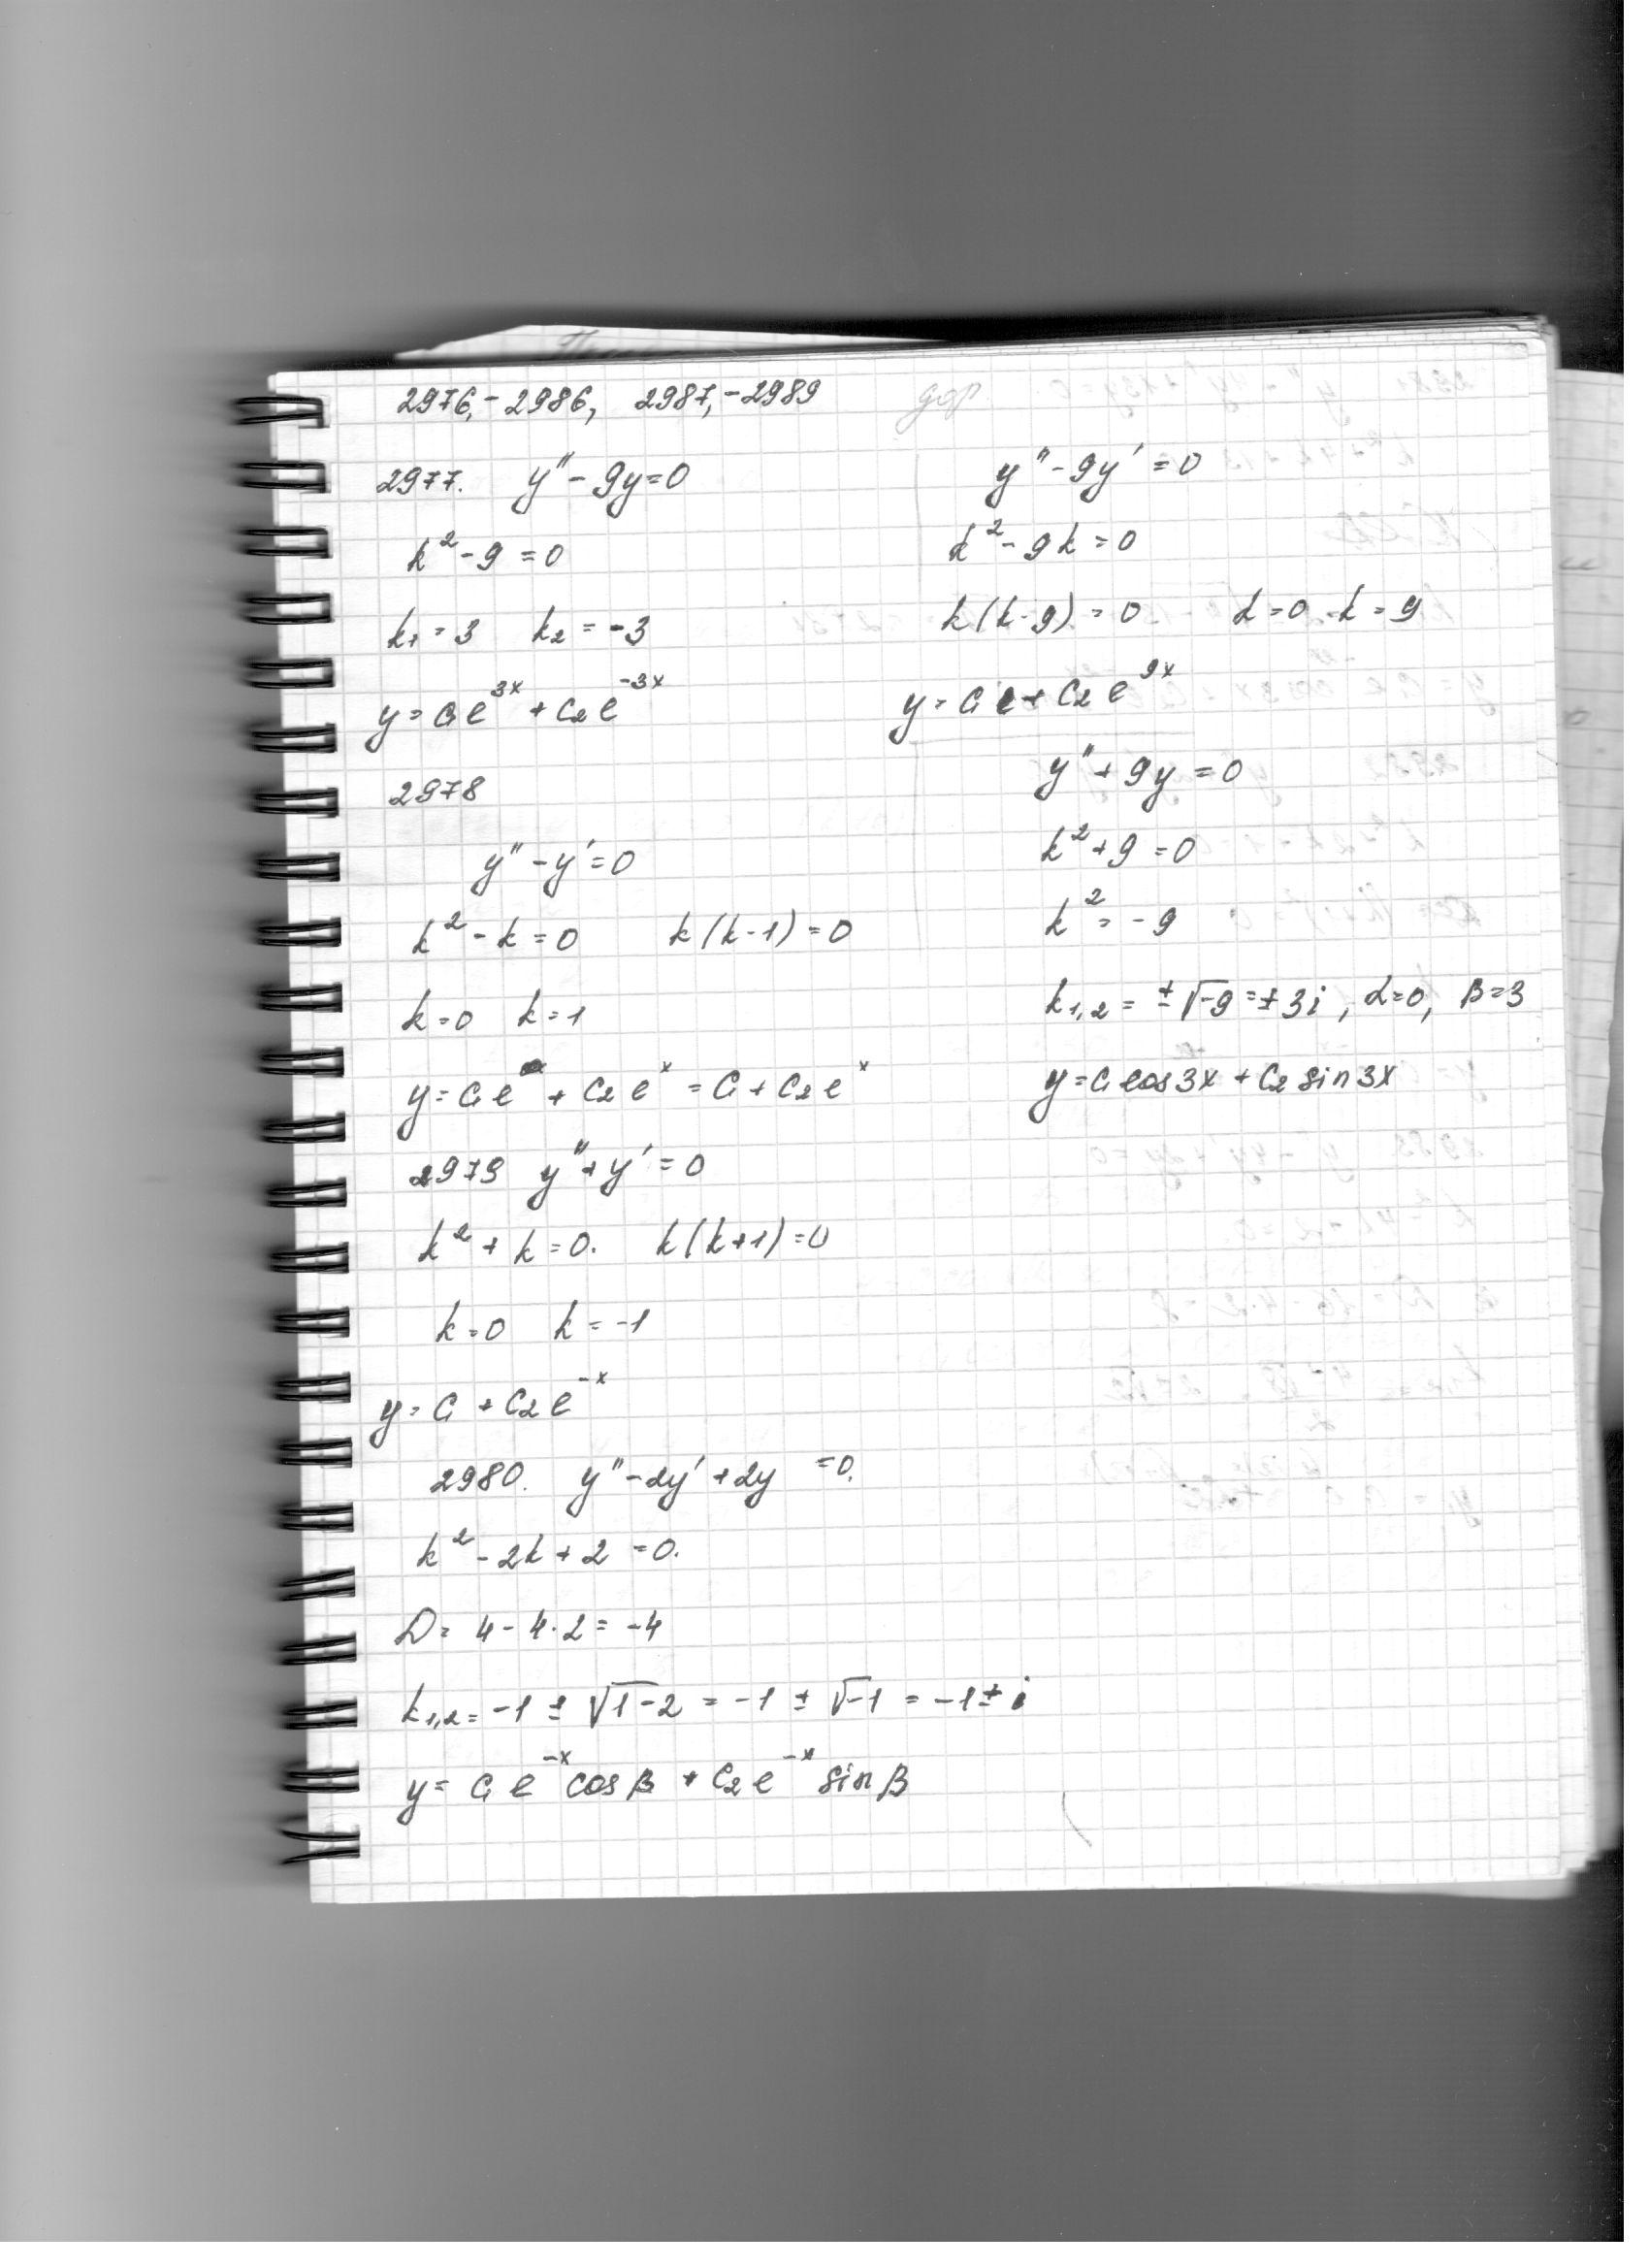 2976,-2986, 2987,-2989
2977. y'' - 9y = 0
k² - 9 = 0
k₁ = 3 k₂ = -3
y = C₁e³ˣ + C₂e⁻³ˣ
2978
y'' - y' = 0
k² - k = 0 k(k-1) = 0
k = 0 k = 1
y = C₁e + C₂eˣ = C₁ + C₂eˣ
2979 y'' + y' = 0
k² + k = 0. k(k+1) = 0
k = 0 k = -1
y = C₁ + C₂e⁻ˣ
2980. y'' - 2y' + 2y = 0.
k² - 2k + 2 = 0.
D = 4 - 4·2 = -4
k₁,₂ = -1 ± √1-2 = -1 ± √-1 = -1 ± i
y = C₁e⁻ˣ cos β + C₂e⁻ˣ sin β
y'' - 9y' = 0
k² - 9k = 0
k(k-9) = 0 k = 0 k = 9
y = C₁ + C₂e⁹ˣ
y'' + 9y = 0
k² + 9 = 0
k² = -9
k₁,₂ = ±√-9 = ±3i, α=0, β=3
y = C₁ cos 3x + C₂ sin 3x